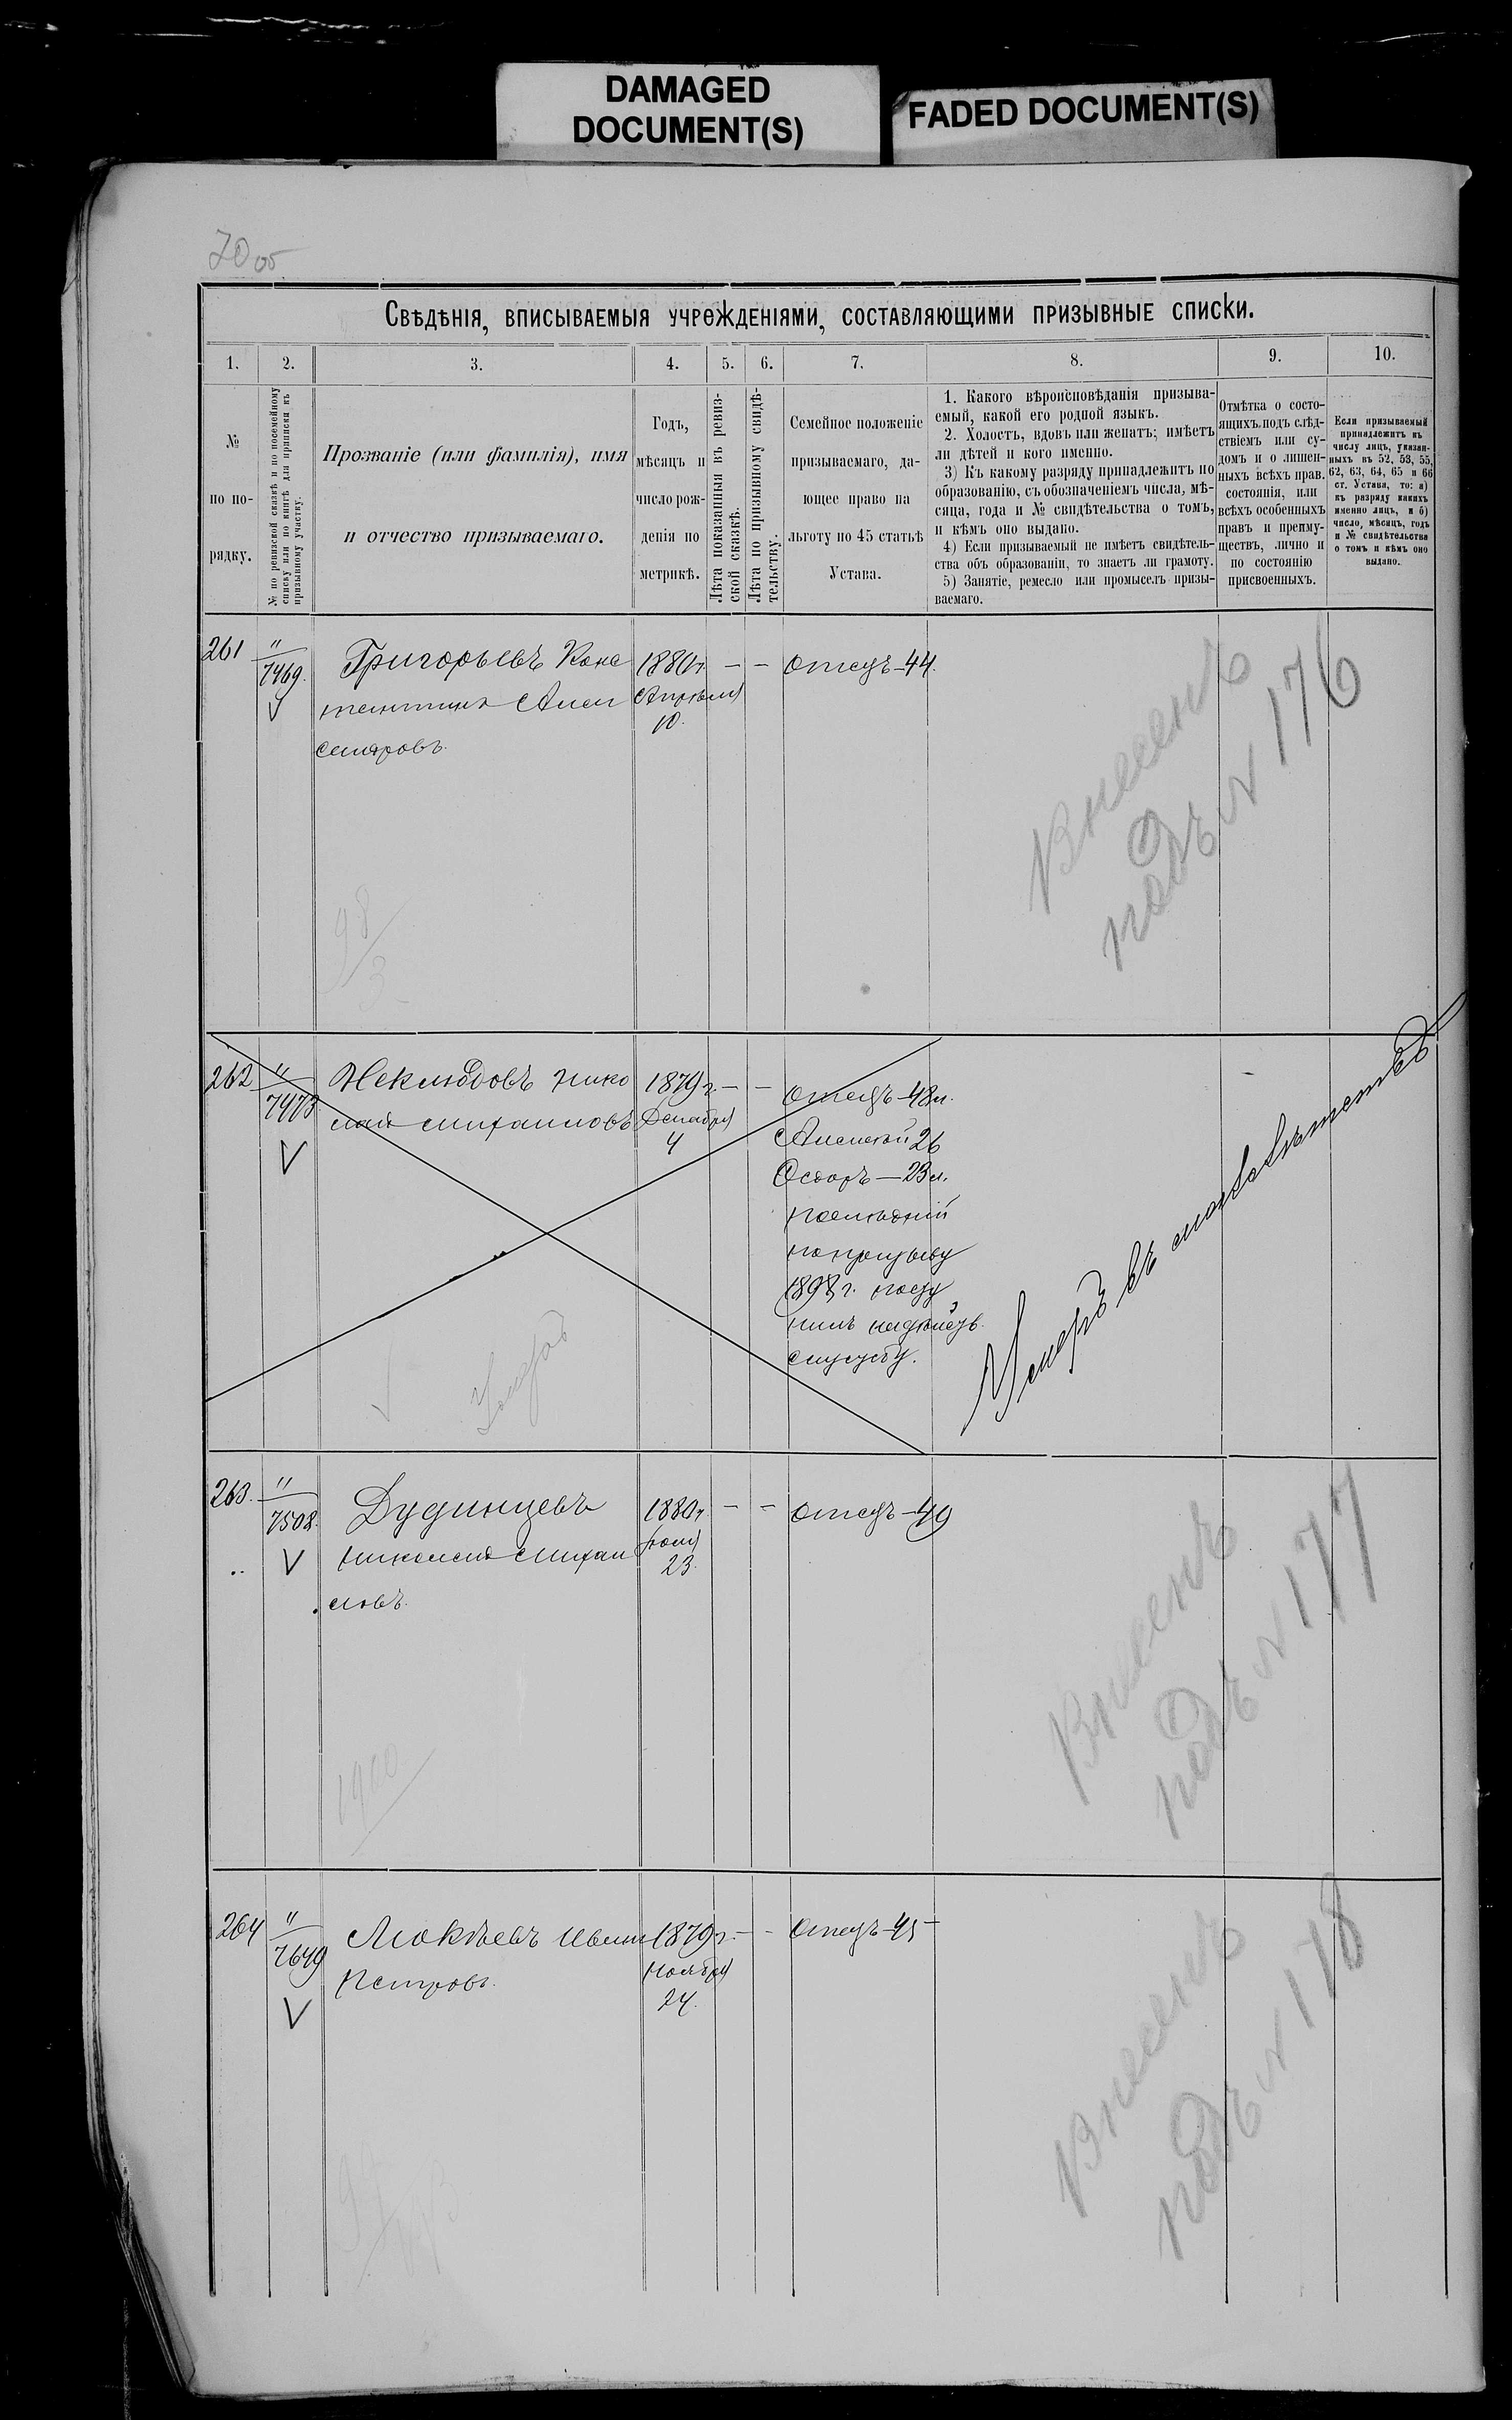 DAMAGED
DOCUMENT(S)
FADED DOCUMENT(S)
70 об
Свѣдѣнія, вписываемыя учрежденіями, составляющими призывные списки.
1. 2. 3. 4. 5. 6. 7. 8. 9. 10.
№
по по-
рядку.
№ по ревизской сказкѣ и по посемейному
списку или по книгѣ для приписки къ
призывному участку.
Прозваніе (или фамилія), имя
и отчество призываемаго.
Годъ,
мѣсяцъ и
число рож-
денія по
метрикѣ.
Лѣта показанныя въ ревиз-
ской сказкѣ.
Лѣта по призывному свидѣ-
тельству.
Семейное положеніе
призываемаго, да-
ющее право на
льготу по 45 статьѣ
Устава.
1. Какого вѣроисповѣданія призыва-
емый, какой его родной языкъ.
2. Холостъ, вдовъ или женатъ; имѣетъ
ли дѣтей и кого именно.
3) Къ какому разряду принадлежитъ по
образованію, съ обозначеніемъ числа, мѣ-
сяца, года и № свидѣтельства о томъ,
и кѣмъ оно выдано.
4) Если призываемый не имѣетъ свидѣтель-
ства объ образованіи, то знаетъ ли грамоту.
5) Занятіе, ремесло или промыселъ призы-
ваемаго.
Отмѣтка о состо-
ящихъ подъ слѣд-
ствіемъ или су-
домъ и о лишен-
ныхъ всѣхъ прав.
состоянія, или
всѣхъ особенныхъ
правъ и преиму-
ществъ, лично и
по состоянію
присвоенныхъ.
Если призываемый
принадлежитъ къ
числу лицъ, указан-
ныхъ въ 52, 53, 55,
62, 63, 64, 65 и 66
ст. Устава, то: а)
къ разряду какихъ
именно лицъ, и б)
число, мѣсяцъ, годъ
и № свидѣтельства
о томъ и кѣмъ оно
выдано.
261 " Григорьевъ Конс 1880г. — — отецъ—44.
7469. тантинъ Алек Апрѣля
V сандровъ. 10.
Внесенъ
подъ № 176
98
3
262 " Неклюдовъ Нико 1879г. — — отецъ—48л.
7473 лай Михаиловъ Декабря
V 4
Алексѣй 26
Ѳедоръ—23л.
послѣдній
по призыву
1898г. посту
пилъ на дѣйств.
службу.
Умеръ въ малолѣтствѣ
Умеръ
V
263. " Дудинцевъ 1880г. — — отецъ—49
7508. Николай Михаи Іюля
V ловъ. 23.
Внесенъ
подъ № 177
1900
264 " Мокѣевъ Иванъ 1879г. — — отецъ—45
7649 Петровъ. Ноября
V 24.
Внесенъ
подъ № 178